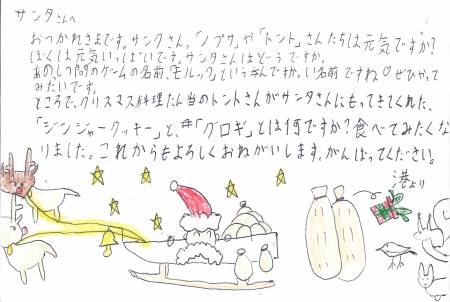 サンタさんへ
おつかれさまです。サンタさん。「ノプサ」や「トント」さんたちは元気ですか?
ぼくは元気いっぱいです。サンタさんはどうですか。
あのしつ問のゲームの名前、「モルック」というんですか。いい名前ですね♡ぜひやって
みたいです。
ところで、クリスマス料理たん当のトントさんがサンタさんにもってきてくれた、
「ジンジャークッキー」と、「グロギ」とは何ですか?食べてみたくな
りました。これからもよろしくおねがいします。がんばってください。
港より